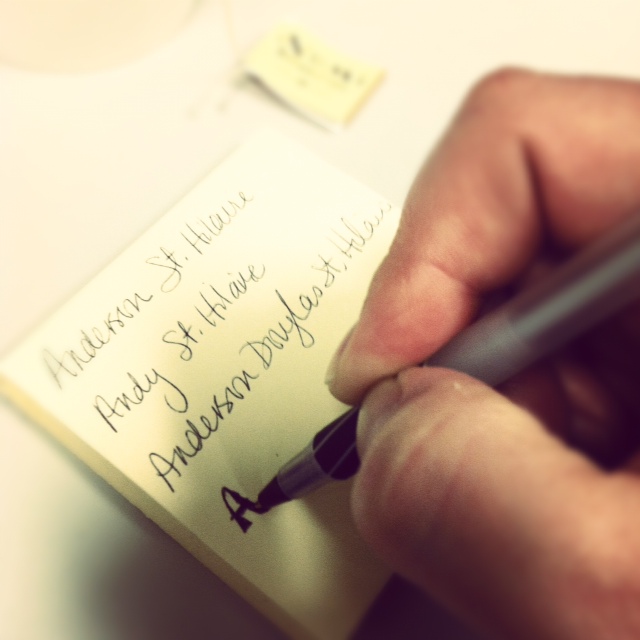 Anderson St. Hilaire
Andy St. Hilaire
Anderson Douglas St. Hilair
A